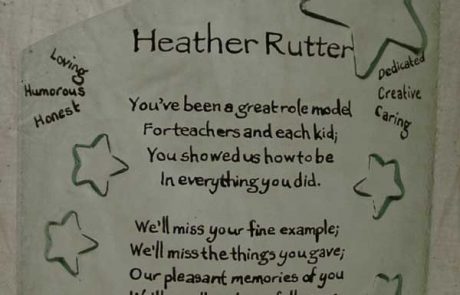 Heather Rutter
Loving
Humorous
Honest
Dedicated
Creative
Caring
You've been a great role model
For teachers and each kid;
You showed us how to be
In everything you did.
We'll miss your fine example;
We'll miss the things you gave;
Our pleasant memories of you